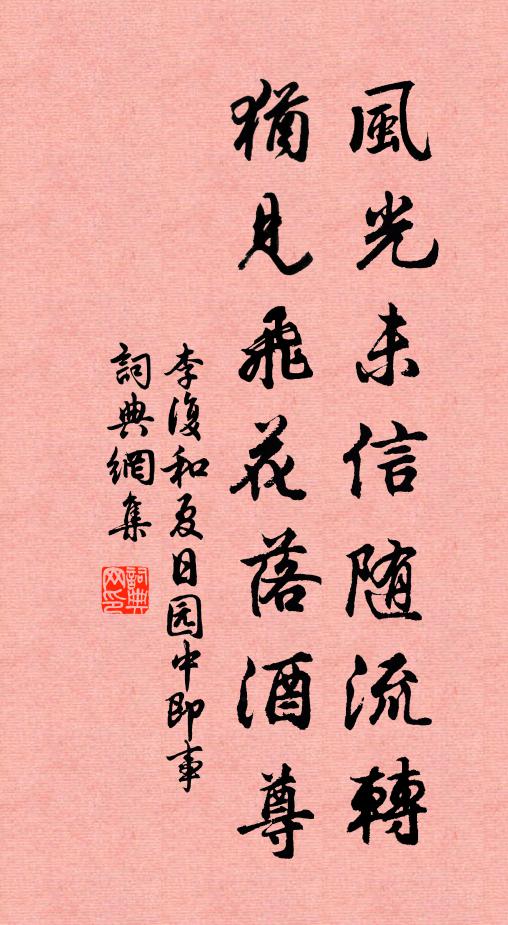 風光未信随流轉
猶見飛花落酒尊
李復和夏日园中即事
詞典網集
詞典网印